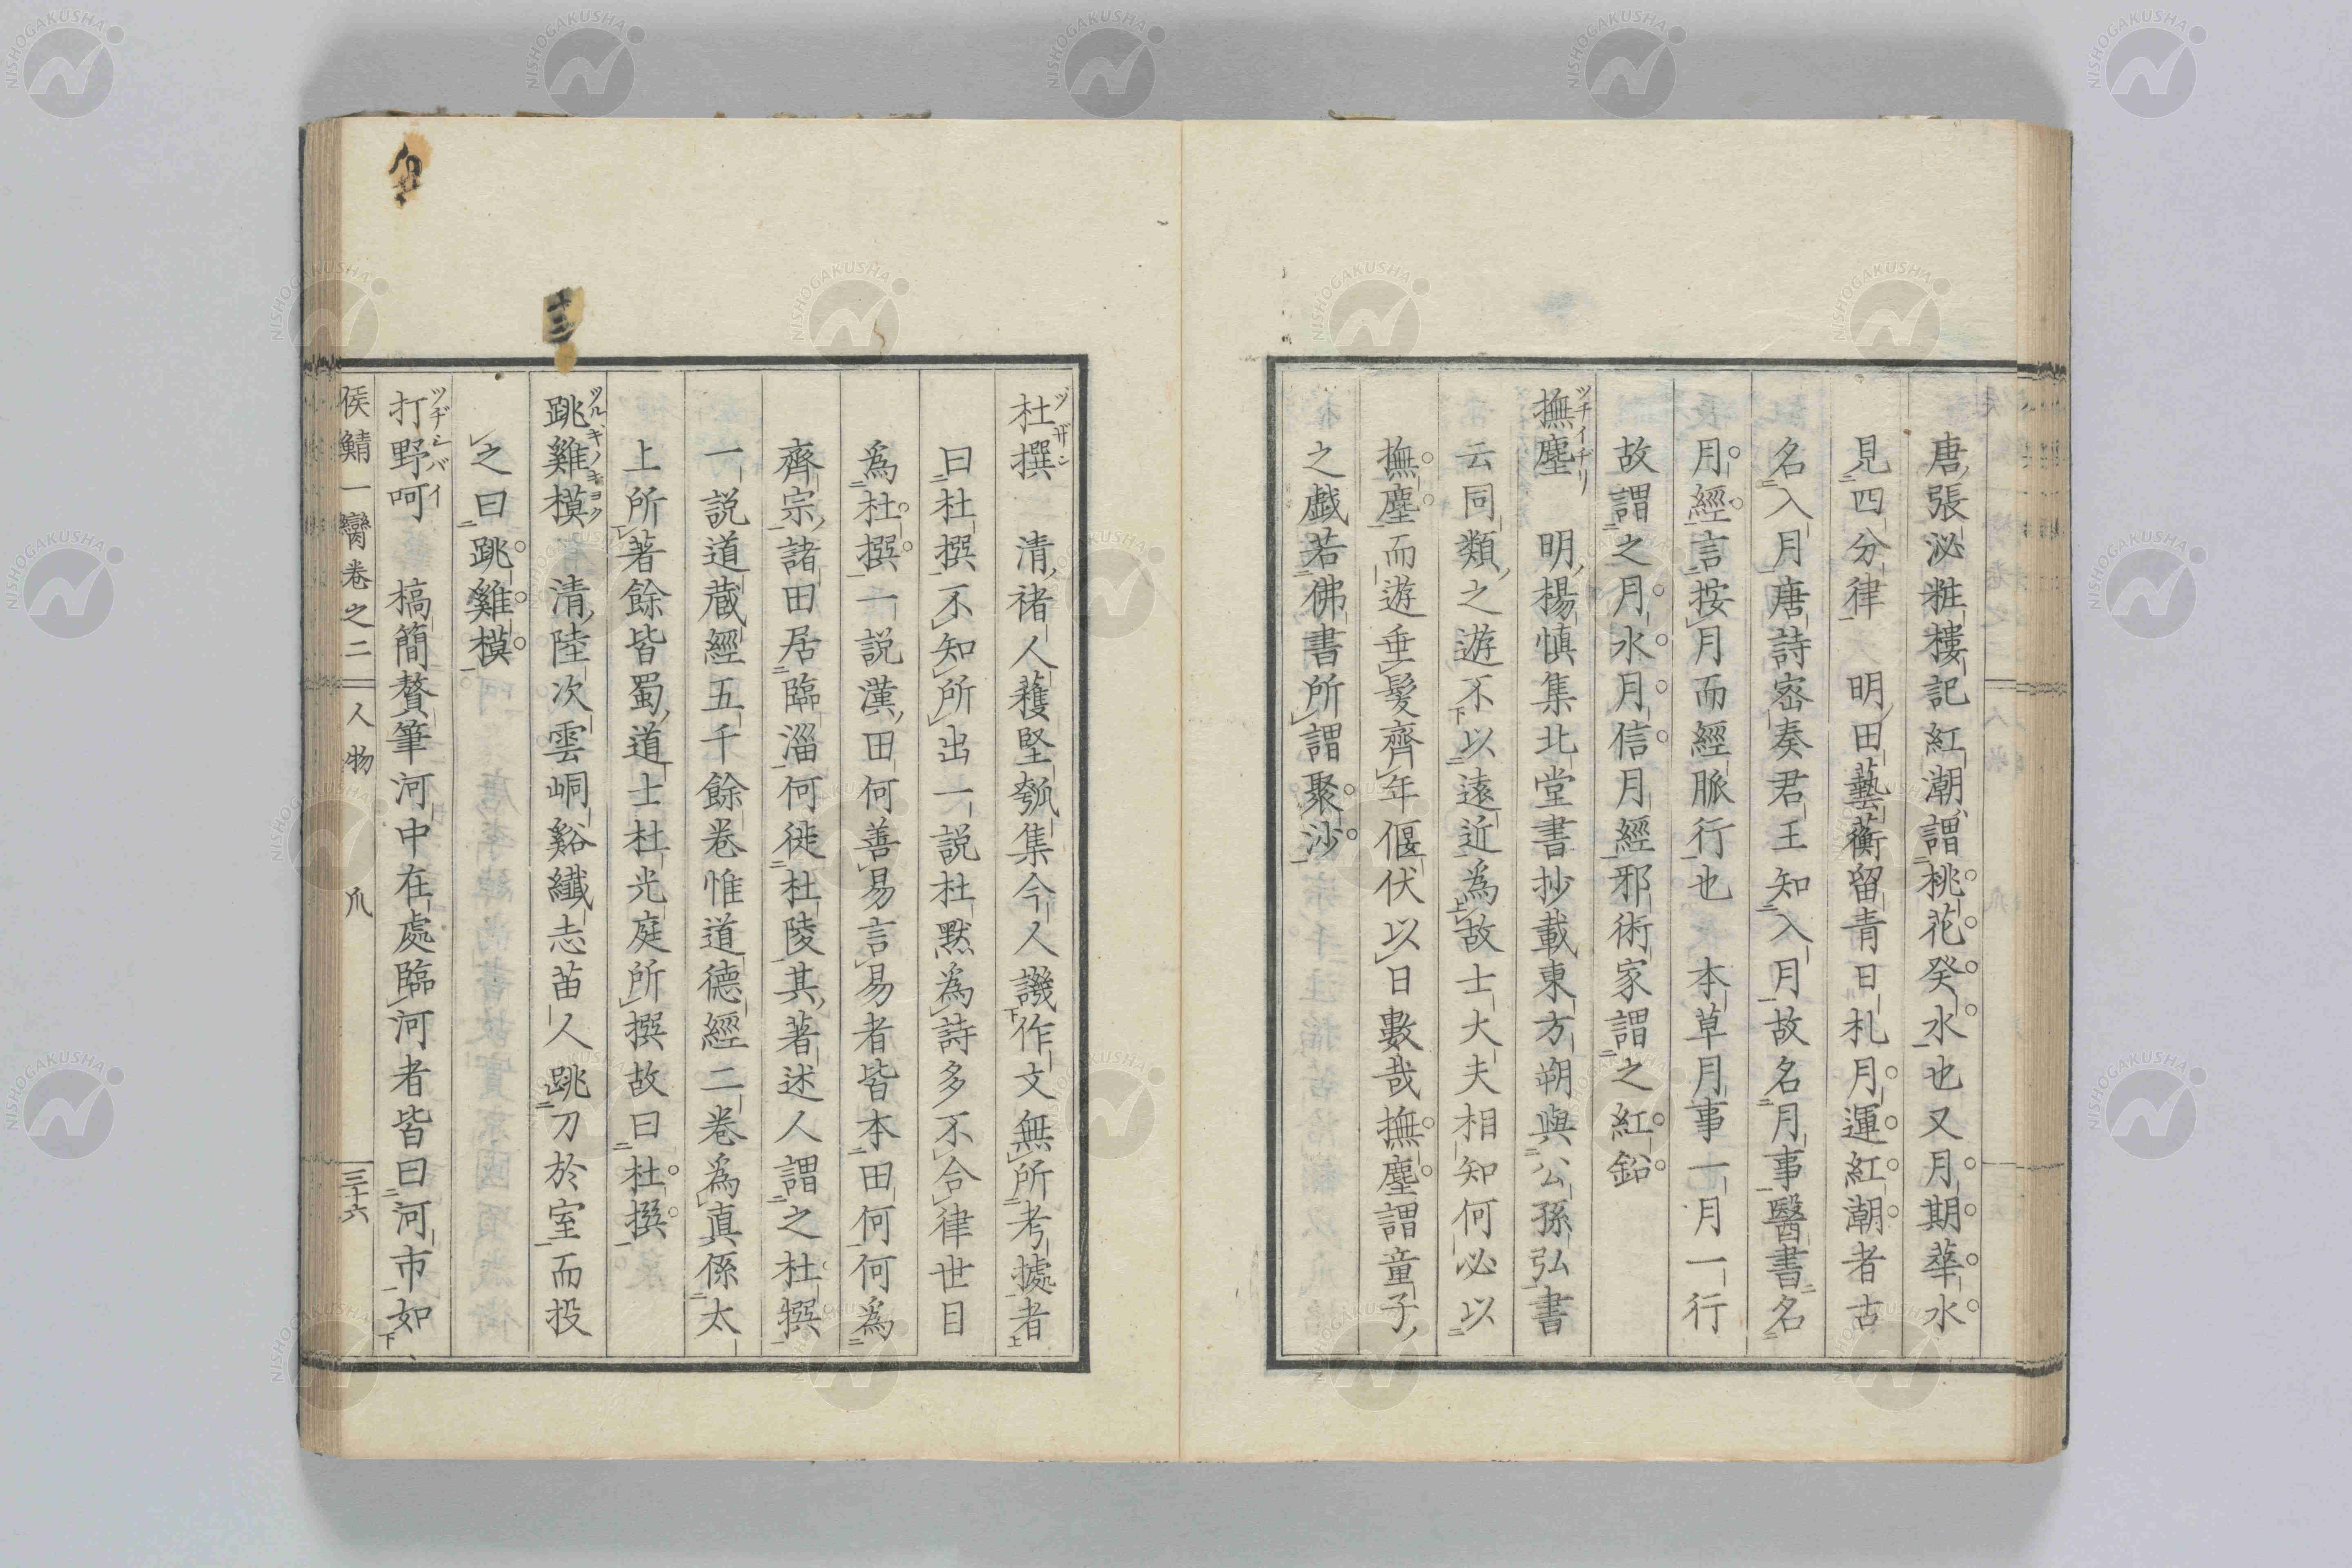 唐張泌粧樓記紅潮謂桃花癸水也又月期華水
見四分律　明田藝蘅留青日札月運紅潮者古
名入月唐詩宻奏君王知入月故名月事醫書名
月經言按月而經脈行也　本草月事一月一行
故謂之月水月信月經邪術家謂之紅鉛
撫塵　明楊慎集北堂書抄載東方朔與公孫弘書
ツチイヂリ
云同類之遊不以遠近為故士大夫相知何必以
撫塵而遊垂髮齊年偃伏以日數哉撫塵謂童子
之戯若佛書所謂聚沙
杜撰　清褚人穫堅瓠集今人譏作文無所考據者
ヅザン
曰杜撰不知所出一說杜默為詩多不合律世目
為杜撰一說漢田何善易言易者皆本田何何為
齊宗諸田居臨淄何徙杜陵其著述人謂之杜撰
一說道蔵經五千餘卷惟道德經二卷為真係太
上所著餘皆蜀道士杜光庭所撰故曰杜撰
跳雞模　清陸次雲峒谿纖志苗人跳刀於室而投
ツルキノキヨク
之曰跳雞模
打野呵　槁簡贅筆河中在處臨河者皆曰河市如
ツヂシバイ
侯鯖一臠卷之二　人物　爪　三十六